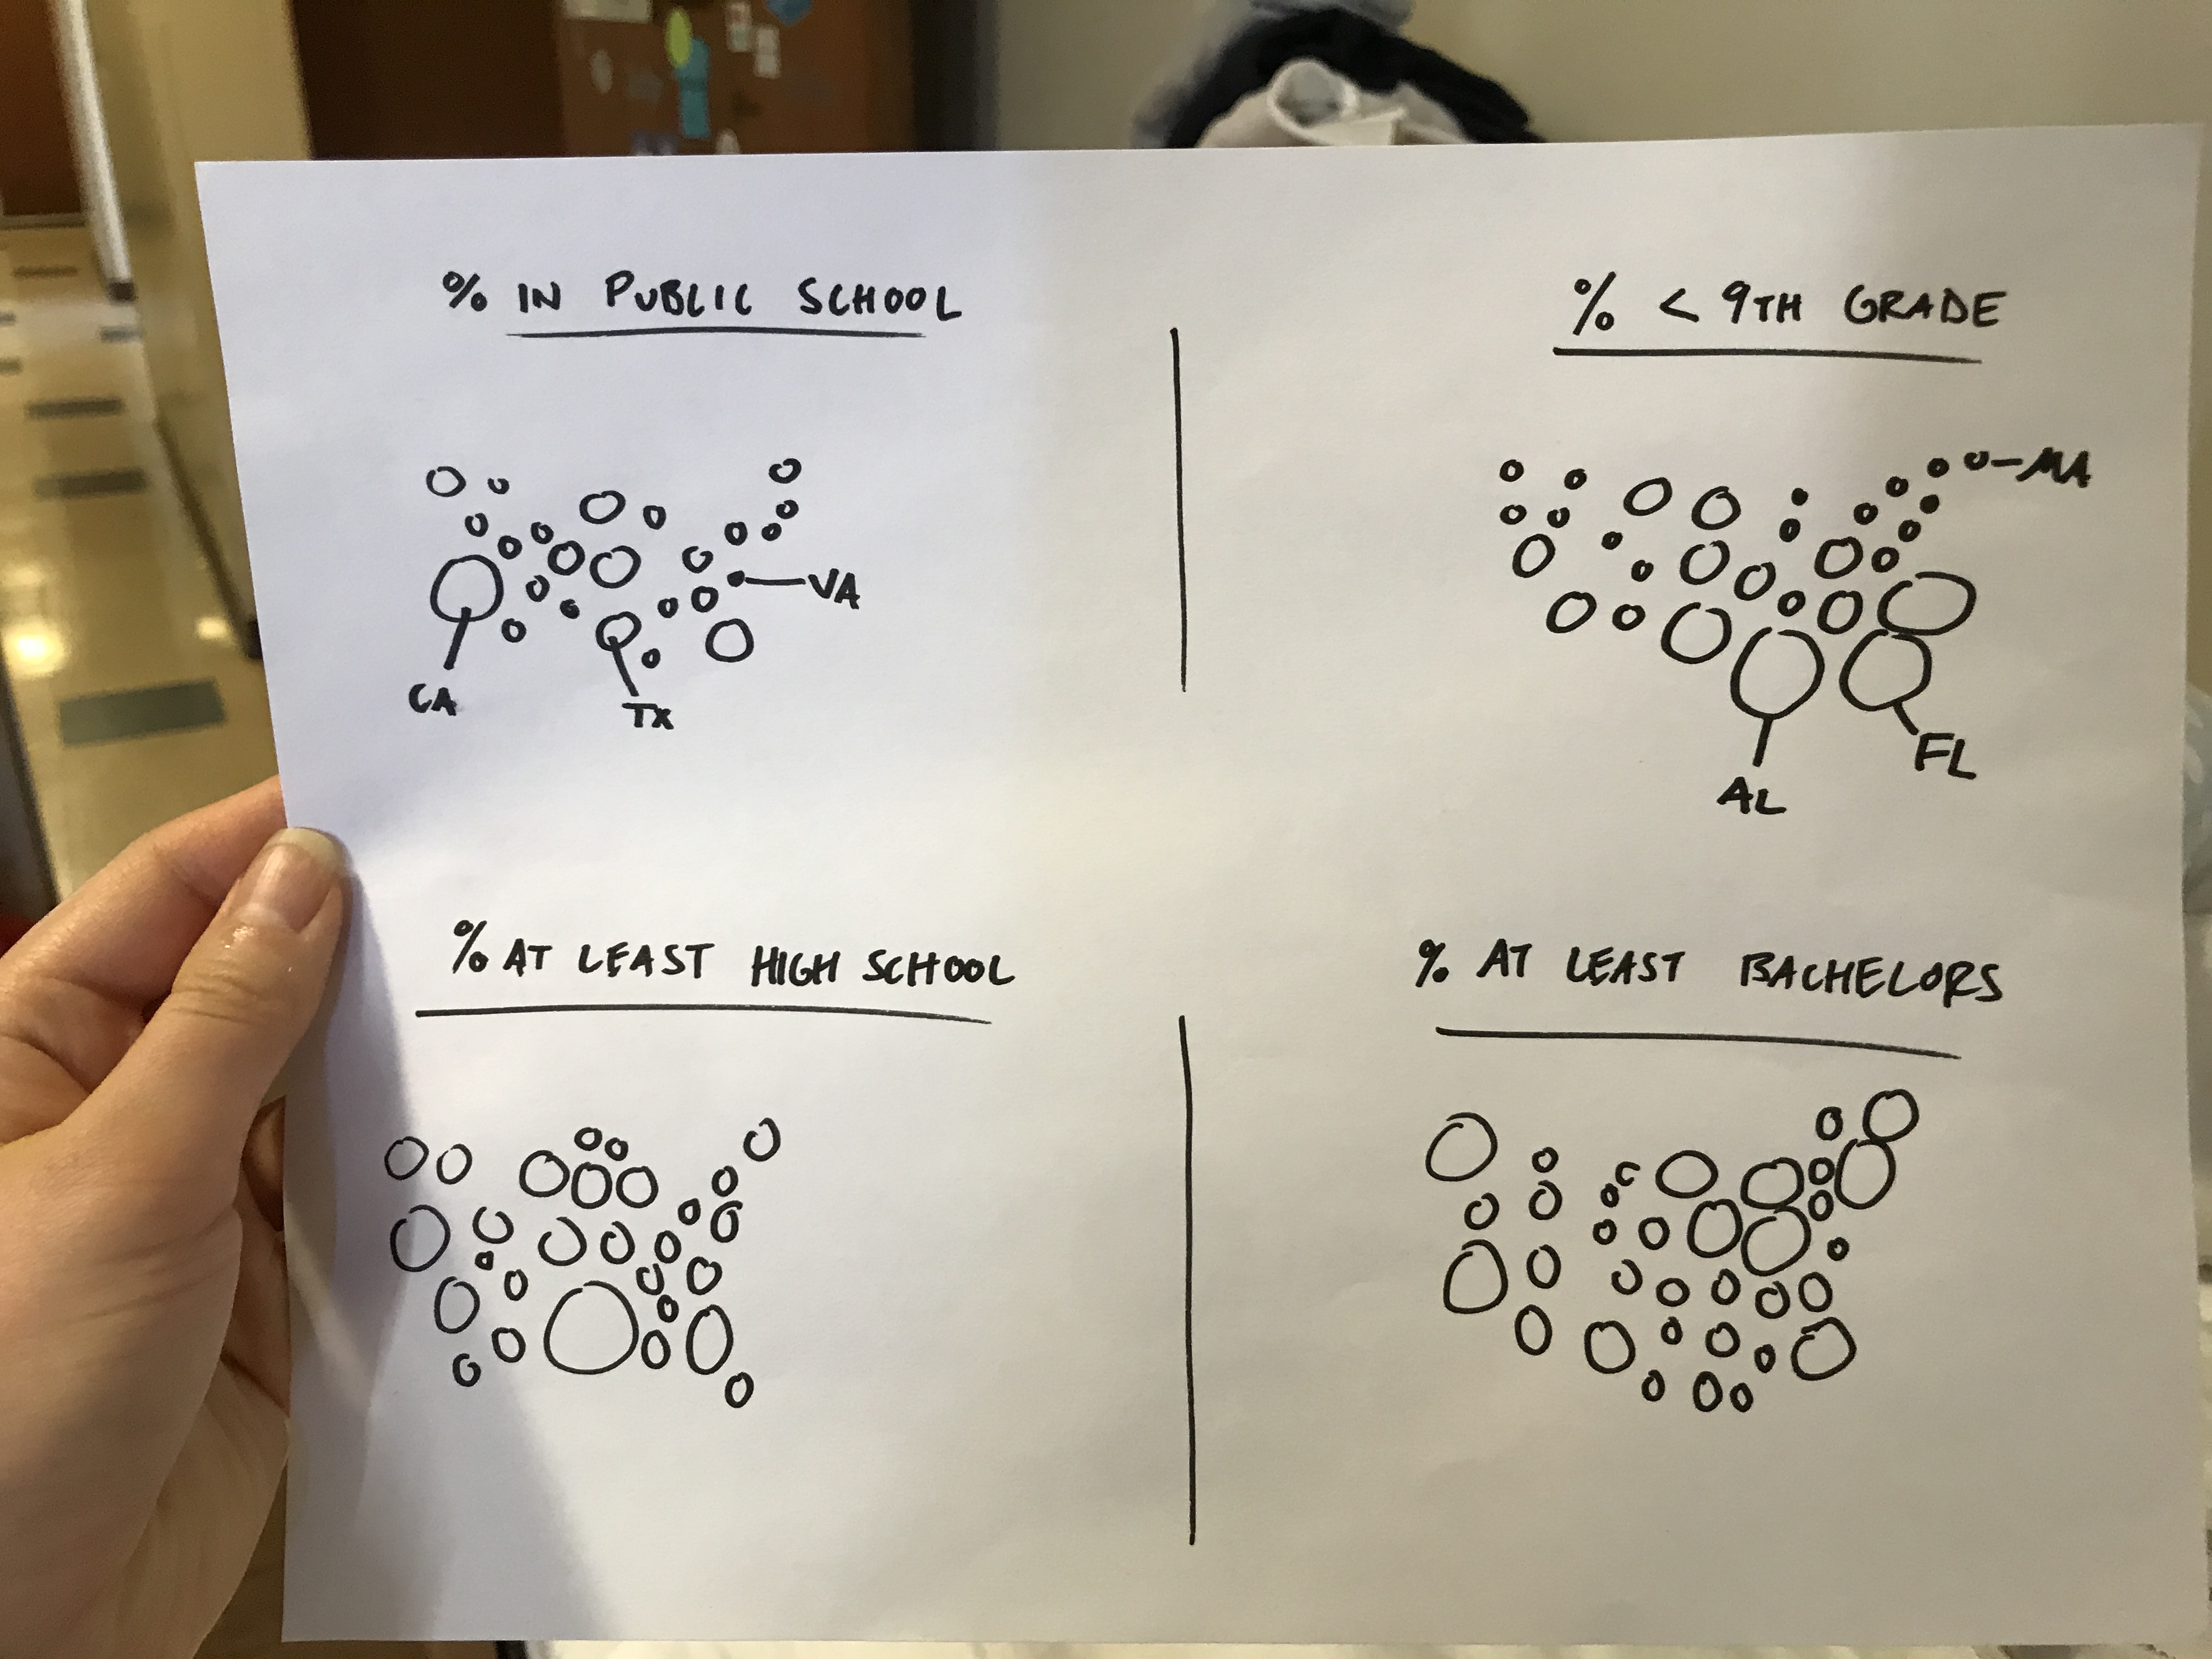 % IN PUBLIC SCHOOL
% < 9TH GRADE
MA
VA
CA
TX
FL
AL
% AT LEAST HIGH SCHOOL
% AT LEAST BACHELORS